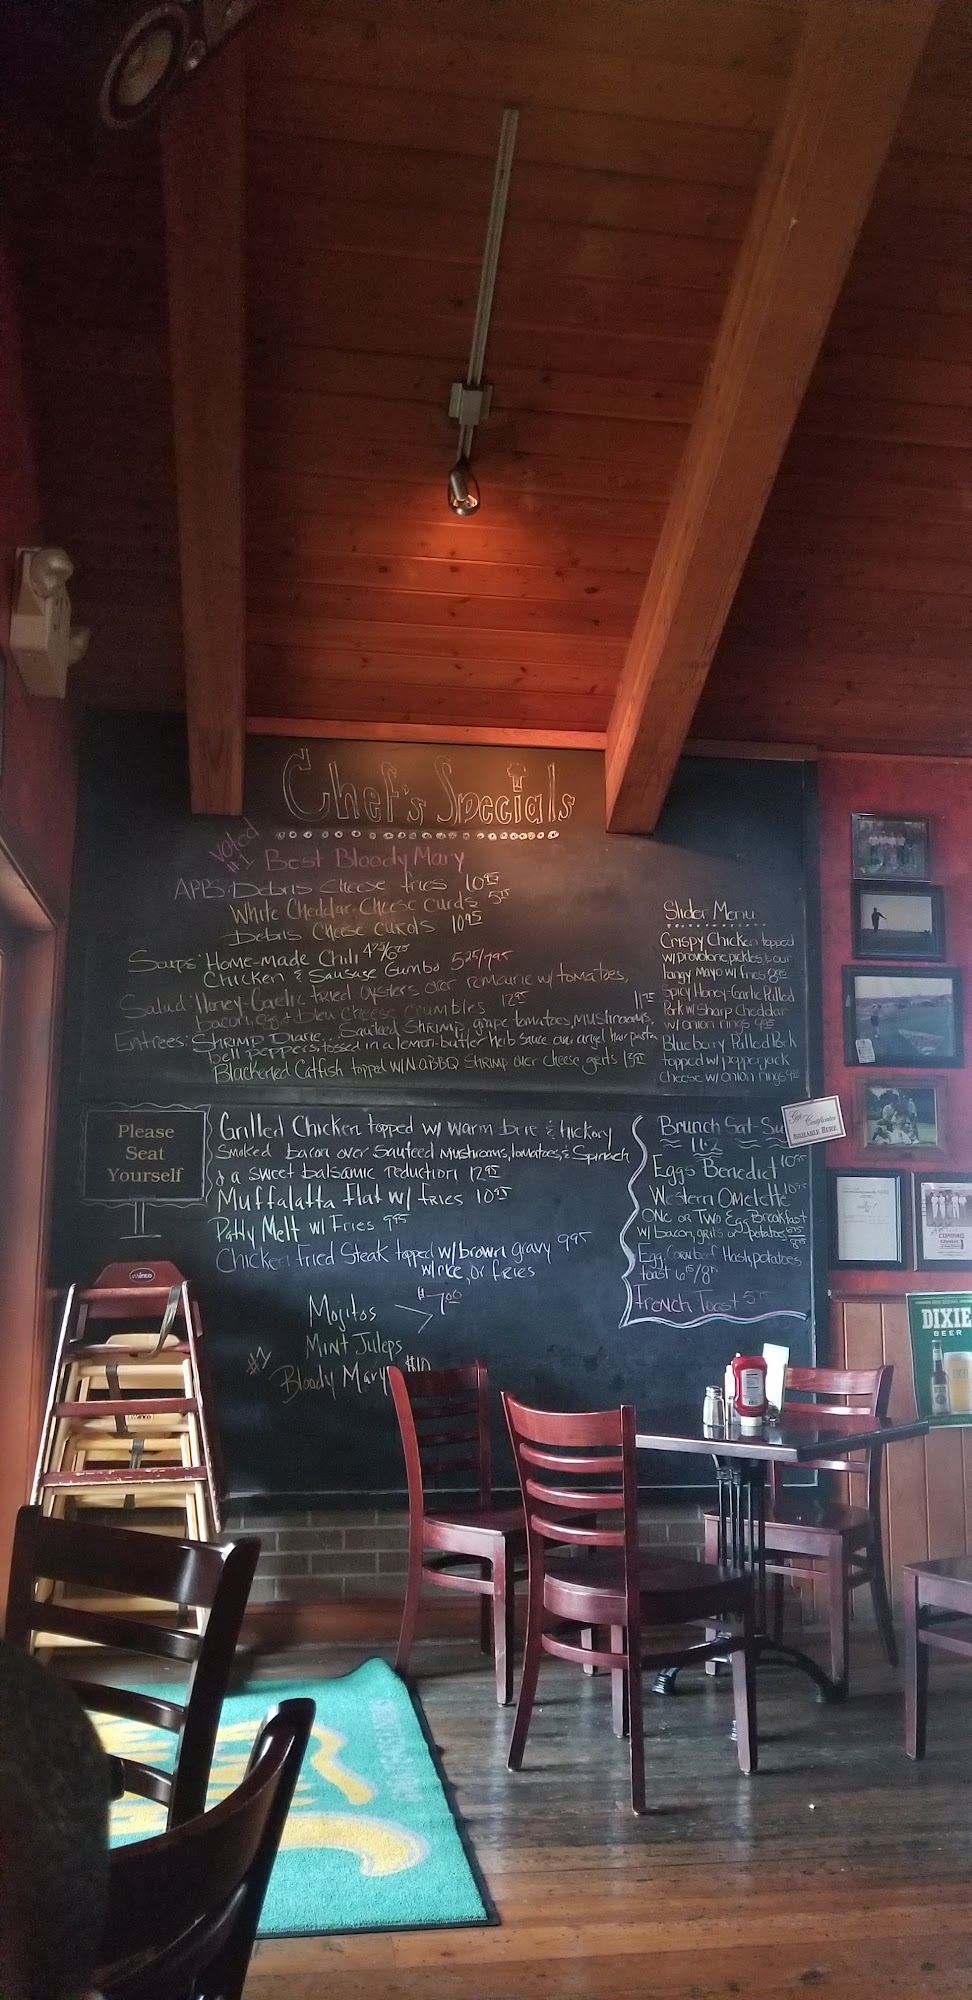 Chef's Specials
Voted
#1 Best Bloody Mary
APPS: Debris Cheese fries 10 95
White Cheddar Cheese curds 5
Debris Cheese curds 10 95
Soups: Home-made Chili
Chicken & Sausage Gumbo 5 25/7 95
Salad: Honey-Garlic fried oysters over remoulade w/ tomatoes,
bacon, egg & bleu Cheese Crumbles 12 95
Entrees: Shrimp Diane... Sauteed Shrimp, grape tomatoes, mushrooms,
bell peppers, tossed in a lemon-butter herb sauce over angel hair pasta
Blackened Catfish topped w/ NOBBQ Shrimp over cheese grits
Slider Menu
Crispy Chicken topped
w/ provolone, pickles, & our
tangy Mayo w/ fries
Spicy Honey-Garlic Pulled
Pork w/ Sharp Cheddar
w/ onion rings
Blueberry Pulled Pork
topped w/ pepperjack
cheese w/ onion rings
Please
Seat
Yourself
Grilled Chicken topped w/ warm brie & hickory
smoked bacon over Sauteed mushrooms, tomatoes, & Spinach
& a sweet balsamic reduction 12 95
Muffalatta flat w/ fries 10 95
Patty Melt w/ Fries 9 95
Chicken Fried Steak topped w/ brown gravy 9 95
w/ rice, or fries
Mojitos
$7.00
Mint Juleps
#1
Bloody Mary $10
Brunch Sat-Su
11-2
Eggs Benedict 10 95
Western Omelette 10 95
One or Two Egg Breakfast
w/ bacon, grits or potatoes
Egg, Corn beef Hash, potatoes
toast
French Toast
Gift Certificates
AVAILABLE HERE
COMING
DIXIE
BEER
winco